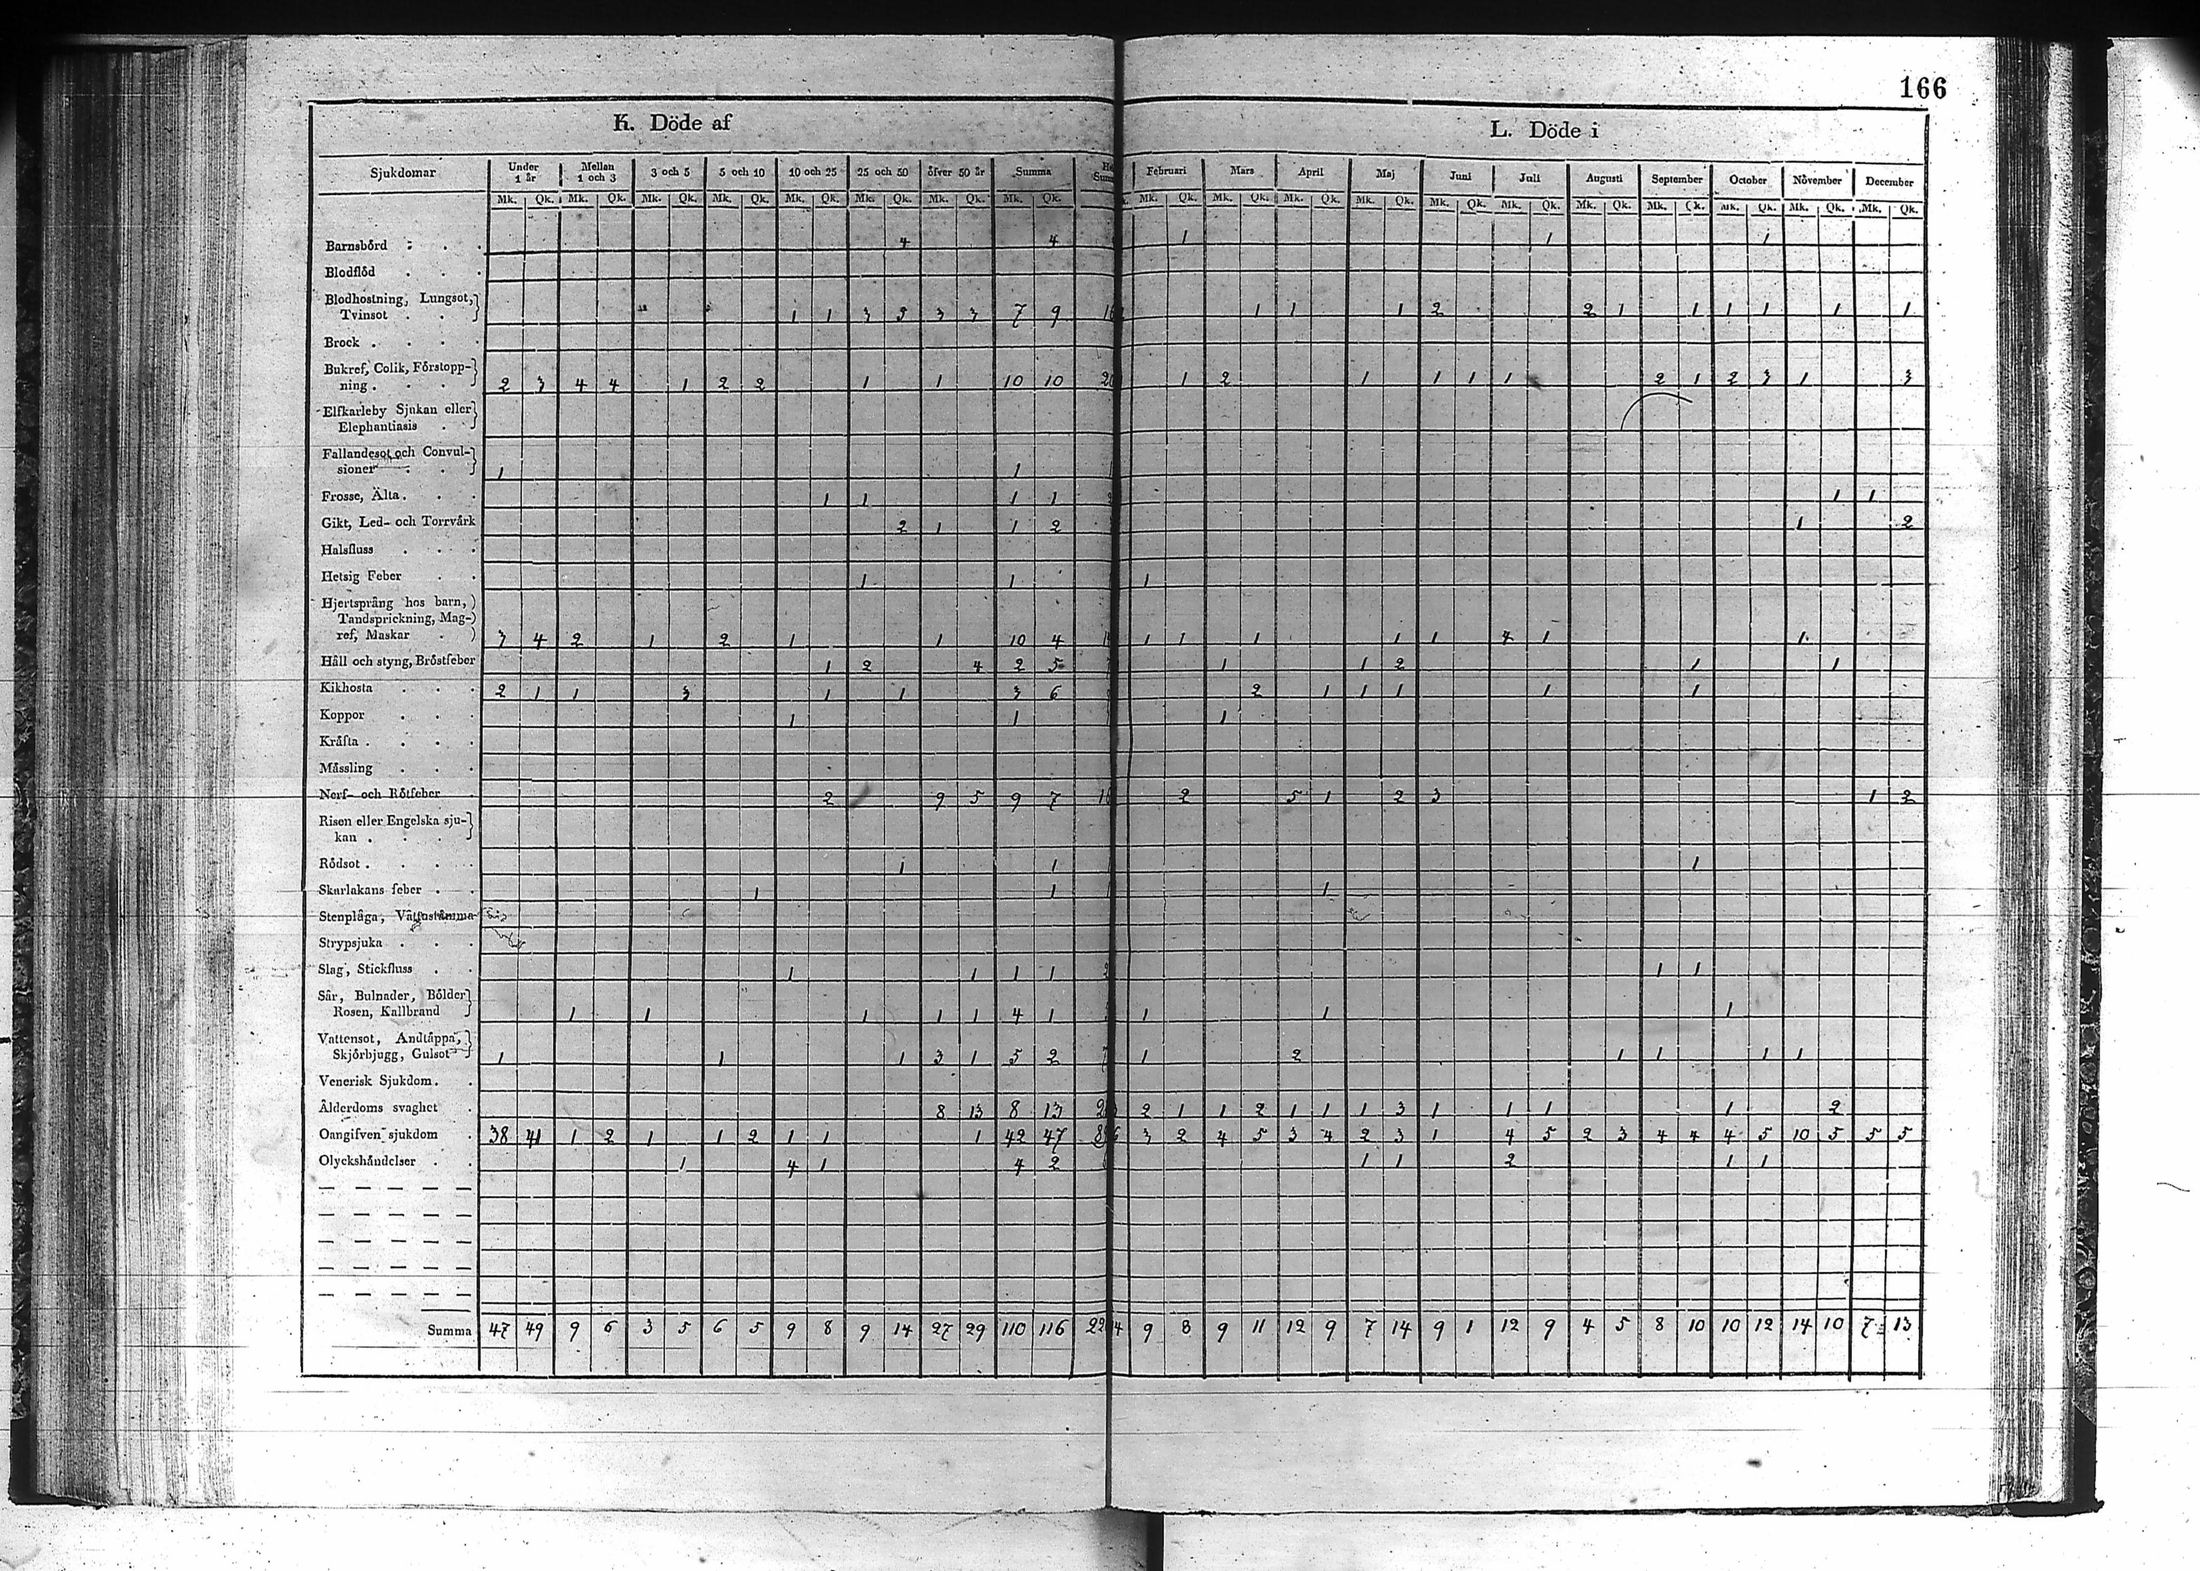 166
K. Döde af
L. Döde i
Sjukdomar Under 1 år Mellan 1 och 3 3 och 5 5 och 10 10 och 25 25 och 50 öfver 50 år Summa Februari Mars April Maj Juni Juli Augusti September October November December
Mk. Qk. Mk. Qk. Mk. Qk. Mk. Qk. Mk. Qk. Mk. Qk. Mk. Qk. Mk. Qk. Mk. Qk. Mk. Qk. Mk. Qk. Mk. Qk. Mk. Qk. Mk. Qk. Mk. Qk. Mk. Qk. Mk. Qk. Mk. Qk. Mk. Qk.
Barnsbörd 4 4 1 1 1
Blodflöd
Blodhostning, Lungsot,
Tvinsot 1 1 3 5 3 3 7 9 16 1 1 1 2 2 1 1 1 1 1 1
Brock
Bukref, Colik, Förstopp-
ning 2 3 4 4 1 2 2 1 1 10 10 20 1 2 1 1 1 1 2 1 2 3 1 3
Elfkarleby Sjukan eller
Elephantiasis
Fallandesot och Convul-
sioner 1 1
Frosse, Älta 1 1 1 1 2 1 1
Gikt, Led- och Torrvärk 2 1 1 2 1 2
Halsfluss
Hetsig Feber 1 1 1
Hjertsprång hos barn,
Tandsprickning, Mag-
ref, Maskar 3 4 2 1 2 1 1 10 4 1 1 1 1 1 4 1 1
Håll och styng, Bröstfeber 1 2 4 2 5 7 1 1 2 1 1
Kikhosta 2 1 1 3 1 1 3 6 2 1 1 1 1 1
Koppor 1 1 1
Kräfta
Mässling
Nerf- och Rötfeber 2 9 5 9 7 16 2 5 1 2 3 1 2
Risen eller Engelska sju-
kan
Rödsot 1 1 1
Skarlakans feber 1 1 1
Stenplåga, Vattustämma
Strypsjuka
Slag, Stickfluss 1 1 1 1 2 1 1
Sår, Bulnader, Bölder
Rosen, Kallbrand 1 1 1 1 1 4 1 1 1 1
Vattensot, Andtäppa,
Skjörbjugg, Gulsot 1 1 1 3 1 5 2 7 1 2 1 1 1 1
Venerisk Sjukdom
Ålderdoms svaghet 8 13 8 13 2 1 1 2 1 1 1 3 1 1 1 1 2
Oangifven sjukdom 38 41 1 2 1 1 2 1 1 1 42 47 89 6 3 2 4 5 3 4 2 3 1 4 5 2 3 4 4 4 5 10 5 5 5
Olyckshändelser 1 4 1 4 2 1 1 2 1 1
Summa 47 49 9 6 3 5 6 5 9 8 9 14 27 29 110 116 22 4 9 8 9 11 12 9 7 14 9 1 12 9 4 5 8 10 10 12 14 10 7 13